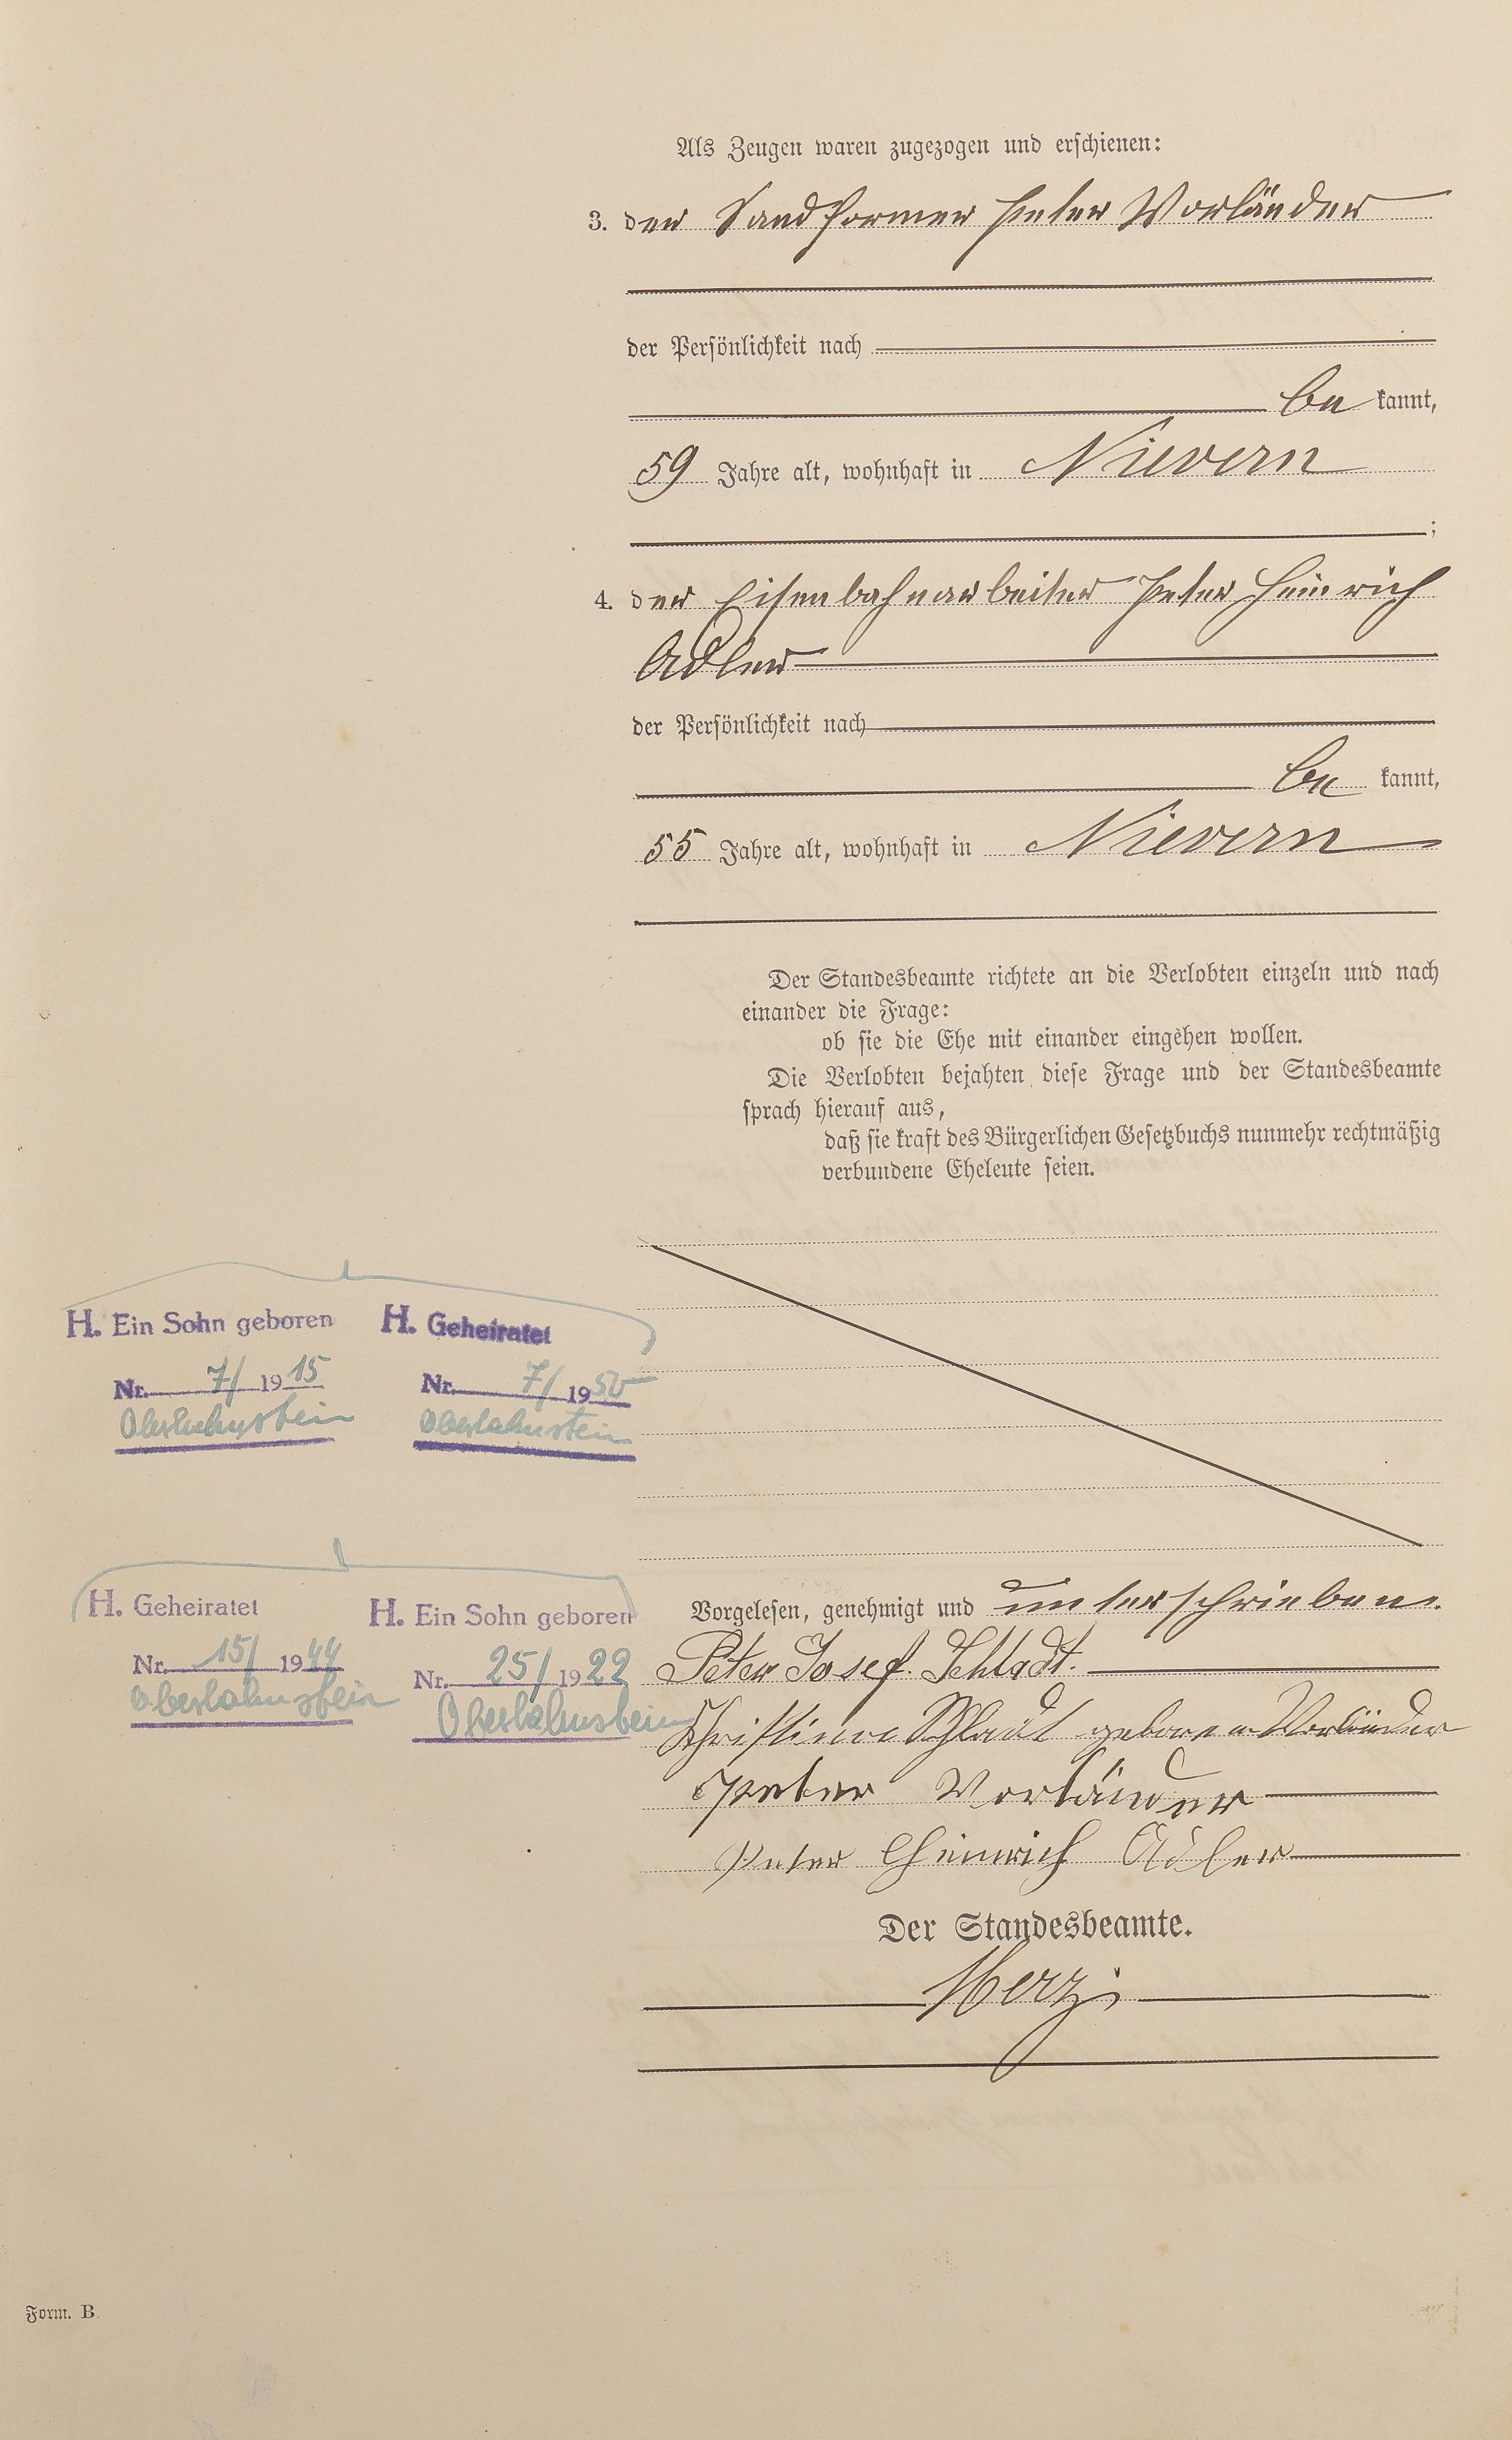 Als Zeugen waren zugezogen und erschienen:
3. der Sandformer Peter Vorländer
der Persönlichkeit nach
be kannt,
59 Jahre alt, wohnhaft in Nievern
;
4. der Eisenbahnarbeiter Peter Heinrich
Adler
der Persönlichkeit nach
be kannt,
55 Jahre alt, wohnhaft in Nievern
Der Standesbeamte richtete an die Verlobten einzeln und nach
einander die Frage:
ob sie die Ehe mit einander eingehen wollen.
Die Verlobten bejahten diese Frage und der Standesbeamte
sprach hierauf aus,
daß sie kraft des Bürgerlichen Gesetzbuchs nunmehr rechtmäßig
verbundene Eheleute seien.
H. Ein Sohn geboren
Nr. 7/ 1915
Oberlahnstein
H. Geheiratet
Nr. 7/ 1950
Oberlahnstein
H. Geheiratet
Nr. 15/ 1944
Oberlahnstein
H. Ein Sohn geboren
Nr. 25/ 1922
Oberlahnstein
Vorgelesen, genehmigt und unterschrieben.
Peter Josef Schladt.
Christine Schladt geborene Vorländer
Peter Vorländer
Peter Heinrich Adler
Der Standesbeamte.
Merz
Form. B.